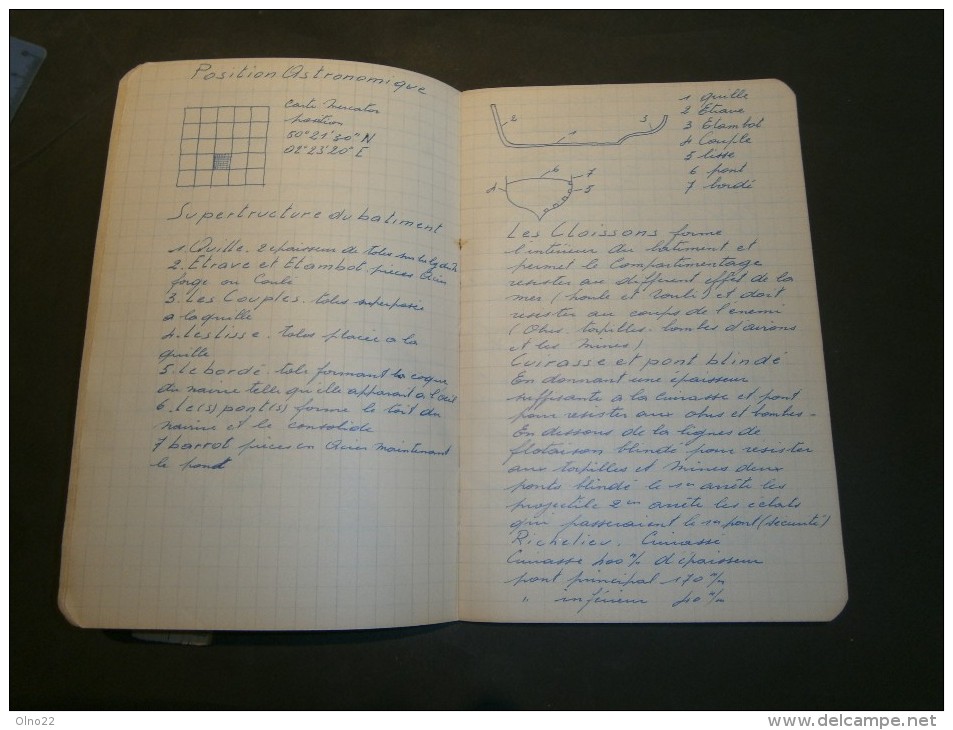 Position Astronomique
Carte Mercator
position
50° 21' 30" N
02° 23' 20" E
Supertructure du batiment
1. Quille. 2 epaisseur de toles
2. Etrave et Etambot. pieces Acier
forge ou Coulé
3. Les Couples. toles superposée
a la quille
4. Les lisse. toles placée a la
quille
5. Le bordé. tole formant la coque
du navire telle qu'elle apparait a l'œil
6. Le(s) pont(s) forme le toit du
navire et le consolide
7 barrot pieces en Acier maintenant
le pont
2
3
1
6
7
4
5
1 quille
2 Etrave
3 Etambot
4 Couple
5 lisse
6 pont
7 bordé
Les Cloissons forme
l'intérieur du batiment et
permet le Compartimentage
resister aux different effet de la
mer (houle et roulis) et doit
resister au coups de l'énemi
(Obus. torpilles. bombes d'avions
et les Mines)
Cuirasse et pont blindé
En donnant une épaisseur
suffisante a la cuirasse et pont
pour resister aux obus et bombes -
En dessous de la lignes de
flotaison blindé pour resister
aux torpilles et Mines deux
ponts blindé le 1er arrête les
projectile 2em arrête les éclats
qui passeraient le 1er pont (sécurité)
Richelieu. Cuirassé
Cuirasse 400 m/m d'épaisseur
pont principal 170 m/m
" inférieur 40 m/m
Olno22
www.delcampe.net